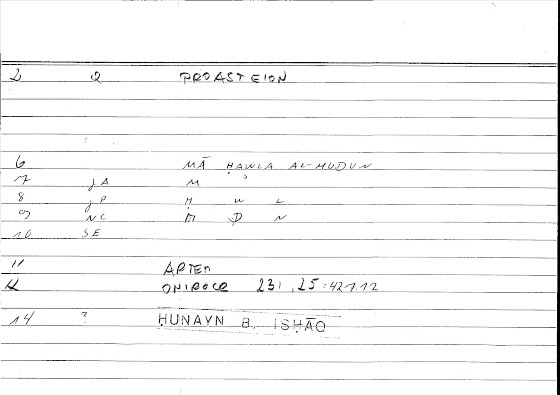 2 Q PROASTEION
6 MĀ ḤAWLA AL-MUDUN
7 JA M
8 JP Ḥ W L
9 NC M D N
10 SE
11 ARTEM
12 ONIROCR 231,25:421.12
14 ? ḤUNAYN B. ISḤĀQ